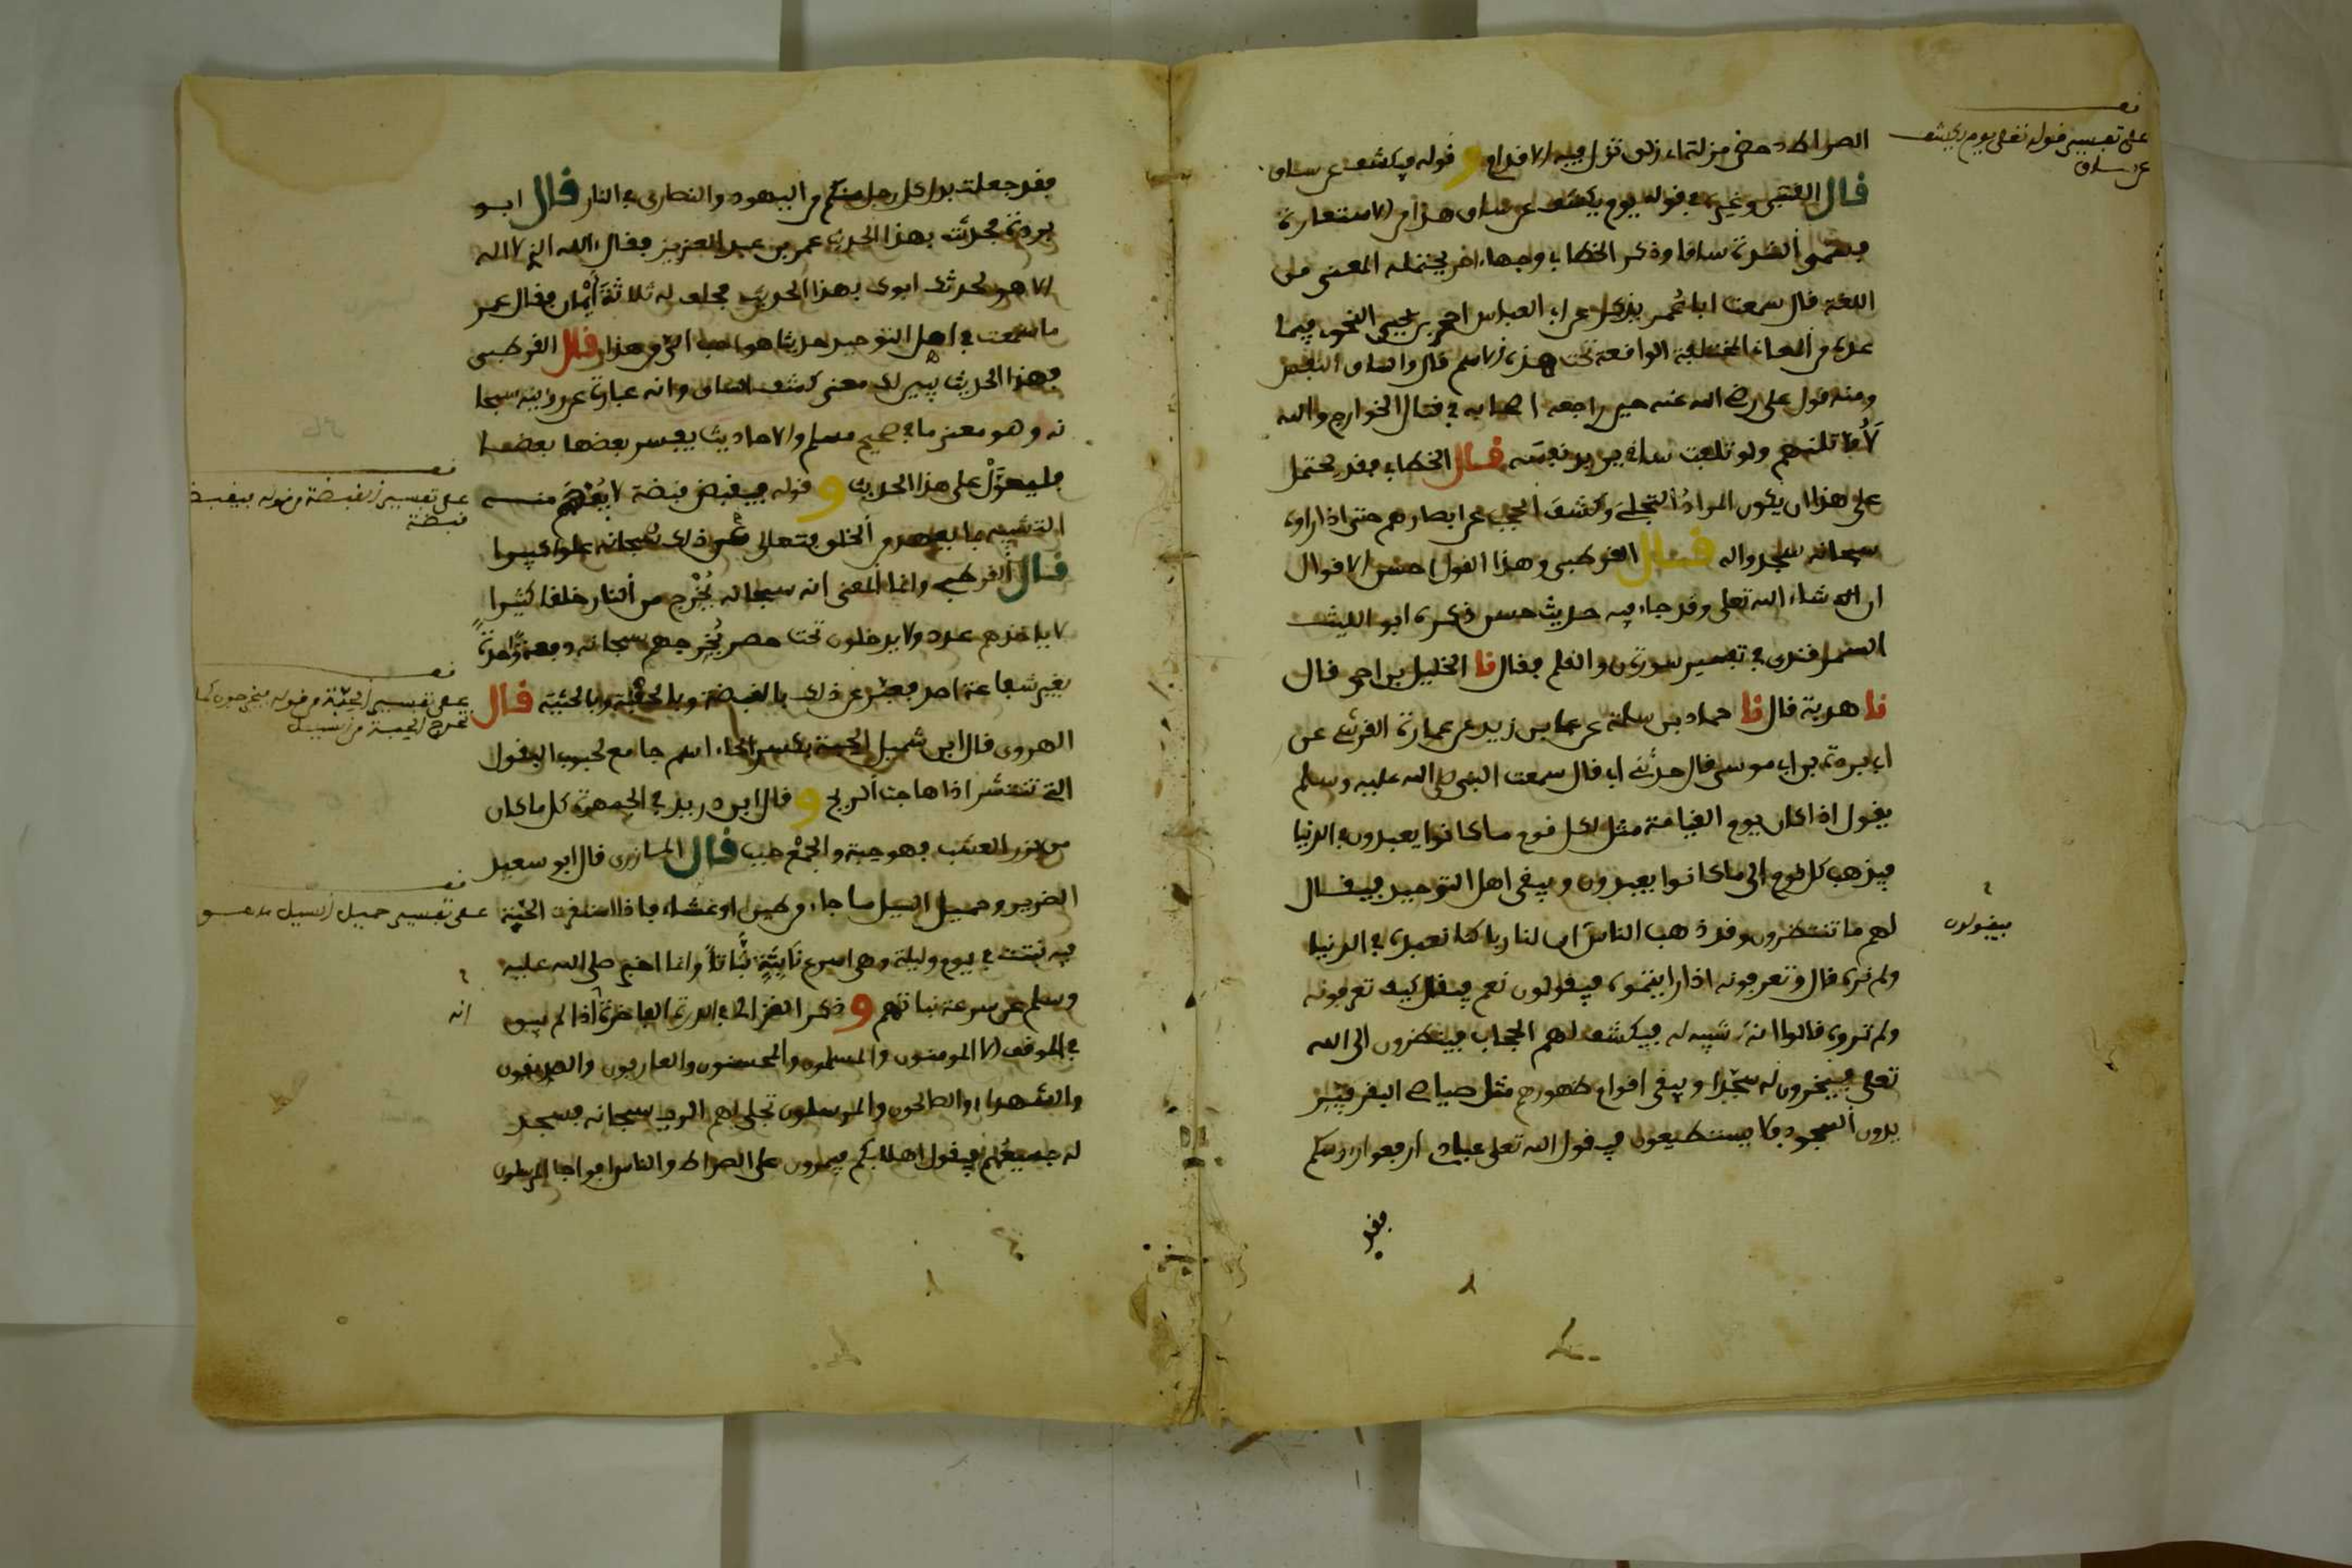 الصراط دحض مزلة اي زلق تزل فيه الاقدام و قوله فيكشف عن ساق
قال القتبي وغيره في قوله يوم يكشف عن ساق هذا من الاستعارة
فسمى الشدة ساقا وذكر الخطابي وجها اخر يحتمله المعنى من
اللغة قال سمعت ابا عمر يذكر عن ابي العباس احمد بن يحيى النحوي فيما
عده من المعاني المختلفة الواقعة تحت هذا الاسم قال والساق النفس
ومنه قول علي رضي الله عنه حين راجعه اصحابه في قتال الخوارج والله
لأقاتلنهم ولو تلفت ساقي يريد نفسه قال الخطابي فقد يحتمل
على هذا ان يكون المراد التجلي وكشف الحجب عن ابصارهم حتى اذا راوه
سبحانه سجدوا له قال القرطبي وهذا القول احسن الاقوال
ان شاء الله تعلى وقد جاء فيه حديث حسن ذكره ابو الليث
السمرقندي في تفسير سورة ن والقلم فقال نا الخليل بن احمد قال
نا هدبة قال نا حماد بن سلمة عن علي بن زيد عن عمارة القرشي عن
ابي بردة بن ابي موسى قال حدثني ابي قال سمعت النبي صلى الله عليه وسلم
يقول اذا كان يوم القيامة مثل لكل قوم ما كانوا يعبدون في الدنيا
فيذهب كل قوم الى ما كانوا يعبدون ويبقى اهل التوحيد فيقال
لهم ما تنتظرون وقد ذهب الناس ان لنا ربا كنا نعبده في الدنيا
ولم نره قال وتعرفونه اذا رايتموه فيقولون نعم فيقال كيف تعرفونه
ولم تروه قالوا انه لا شبيه له فيكشف لهم الحجاب فينظرون الى الله
تعلى فيخرون له سجدا ويبقى اقوام ظهورهم مثل صياصي البقر فيريـ
دون السجود فلا يستطيعون فيقول الله تعلى عبادي ارفعوا رءوسكم
فقد
نقـ
على تفسير قوله تعلى يوم يكشف
عن ساق
فيقولون
فقد جعلت بدل كل رجل منكم من اليهود والنصارى في النار قال ابو
بردة فحدثت بهذا الحديث عمر بن عبد العزيز فقال الله الذي لا اله
الا هو لحدثك ابوك بهذا الحديث فحلف له ثلاثة أيمان فقال عمر
ما سمعت في اهل التوحيد حديثا هو احب الي من هذا قال القرطبي
فهذا الحديث يبين لك معنى كشف الساق وانه عبارة عن رؤيته سبحا
نه وهو معنى ما في صحيح مسلم والاحاديث يفسر بعضها بعضا
فليعول على هذا الحديث و قوله فيقبض قبضة لا يفهم منه
التشبيه بما يعهد من الخلق يتعالى عن ذلك سبحانه علوا كبيرا
قال القرطبي وانما المعنى انه سبحانه يخرج من النار خلقا كثيرا
لا ياخذهم عدد ولا يدخلون تحت حصر يخرجهم سبحانه دفعة واحدة
بغير شفاعة احد فعبر عن ذلك بالقبضة وبالحفنة وبالحثية قال
الهروي قال ابن شميل الحبة بكسر الحاء اسم جامع لحبوب البقول
التي تنتشر اذا هاجت الريح و قال ابن دريد في الجمهرة كل ما كان
من بزر العشب فهو حبة والجمع حبب قال المازري قال ابو سعيد
الضرير وحميل السيل ما جاء من طين او غثاء فاذا استقرت الحبة
فيه نبتت في يوم وليلة وهي اسرع نابتة نباتا وانما اخبر صلى الله عليه
وسلم عن سرعة نباتهم و ذكر الغزالي في الدرة الفاخرة اذا لم يبق
في الموقف الا المومنون والمسلمون والمحسنون والعارفون والصديقون
والشهداء والصالحون والمرسلون تجلى لهم الرب سبحانه فسجد
له جميعهم فيقول اهلا بكم فيمرون على الصراط والناس افواجا المرسلون
نقـ
على تفسير القبضة من قوله فيقبض
قبضة
نقـ
على تفسير الحبة من قوله فيخرجون كما
تخرج الحبة من السيل
نقـ
على تفسير حميل السيل ما هو
انه